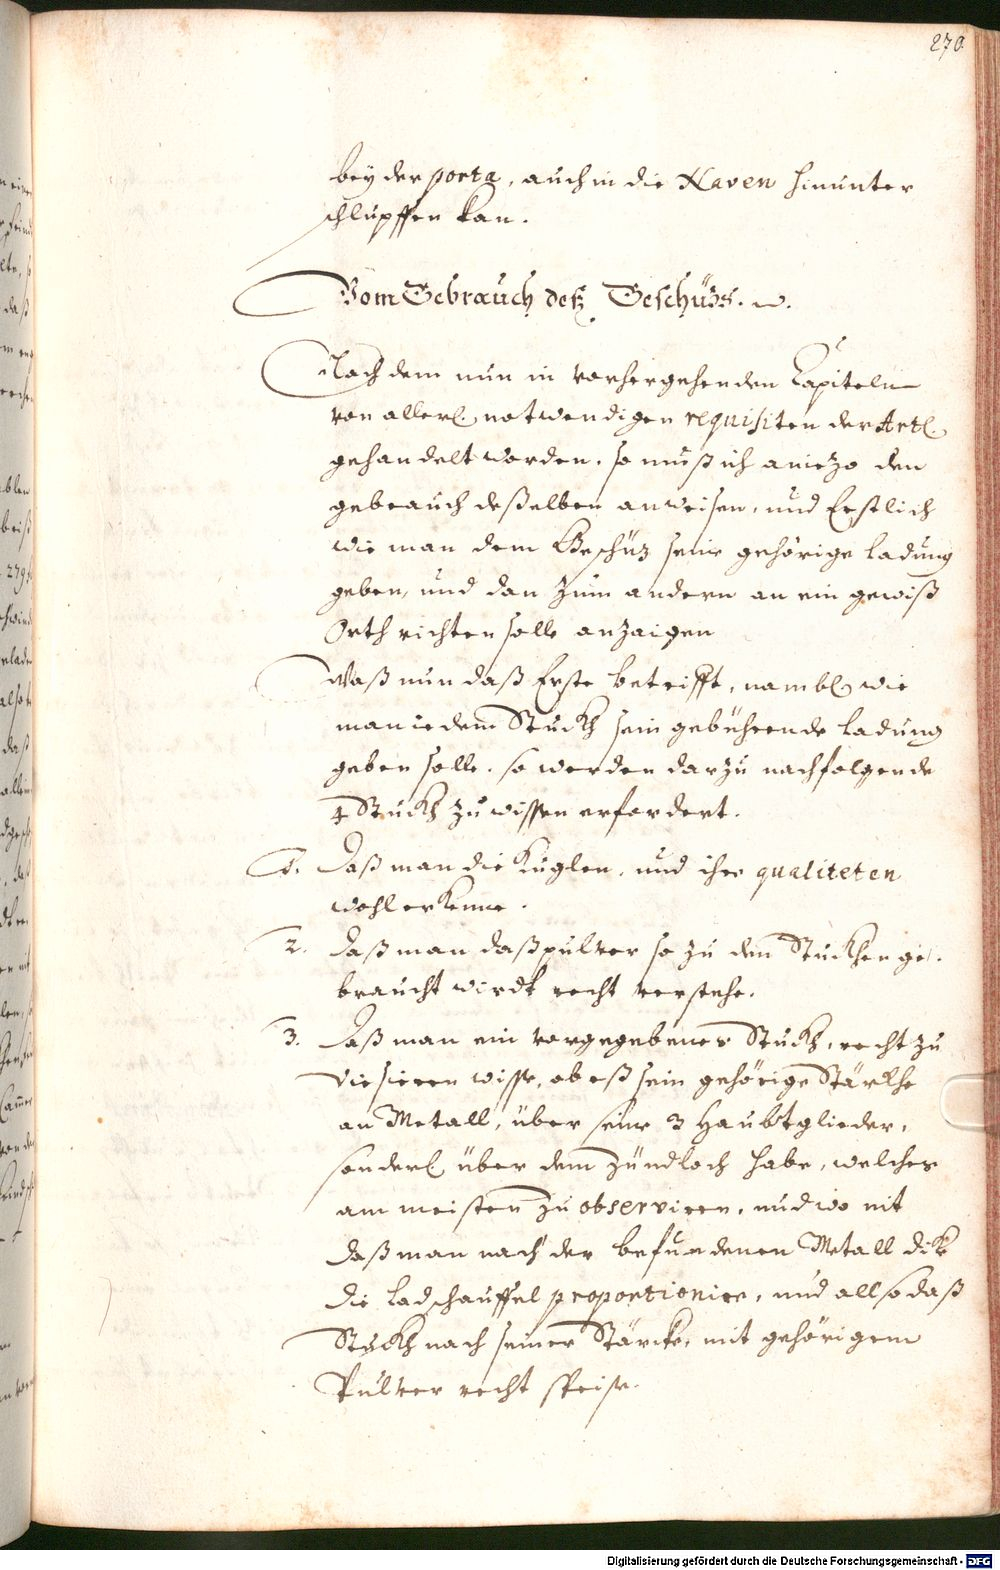 270.
bey der porta, auch in die Haven hinunter
schlupffen kan.
Vom Gebrauch deß Geschüzs.
Nach dem nun in vorhergehenden Capiteln
von allerl. notwendigen requisiten der Artl.
gehandelt worden, so muß ich aniezo den
gebrauch deßelben anweisen, und Erstlich
wie man dem Geschüz seine gehörige ladung
geben, und dan zum andern an ein gewiß
Orth richten solle anzaigen
Waß nun daß Erste betrifft, nambl. wie
man iedem Stuckh sein gebührende ladung
geben solle, so werden darzu nachfolgende
4 Stuckh zu wissen erfordert.
1. Daß man die Kuglen, und ihre qualiteten
wohl erkenne.
2. Daß man daß pulver so zu den Stuckhen ge-
braucht wirdt recht verstehe.
3. Daß man ein vorgegebenes Stuckh, recht zu
visieren wisse, ob eß sein gehörige Stärkhe
an Metall, über seine 3 Haubtglieder,
sonderl. über dem Zündloch habe, welches
am meisten zu observiren, und wo nit
daß man nach der befundenen Metall dik
die ladschauffel proportionire, und allso daß
Stuckh nach seiner Stärcke, mit gehörigem
Pulver recht speise.
Digitalisierung gefördert durch die Deutsche Forschungsgemeinschaft - DFG